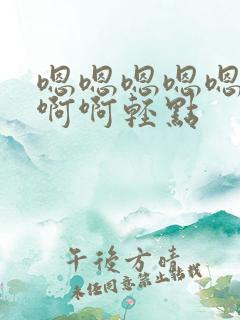 嗯嗯嗯嗯嗯
啊啊輕點
午後方晴
未经同意禁止转载